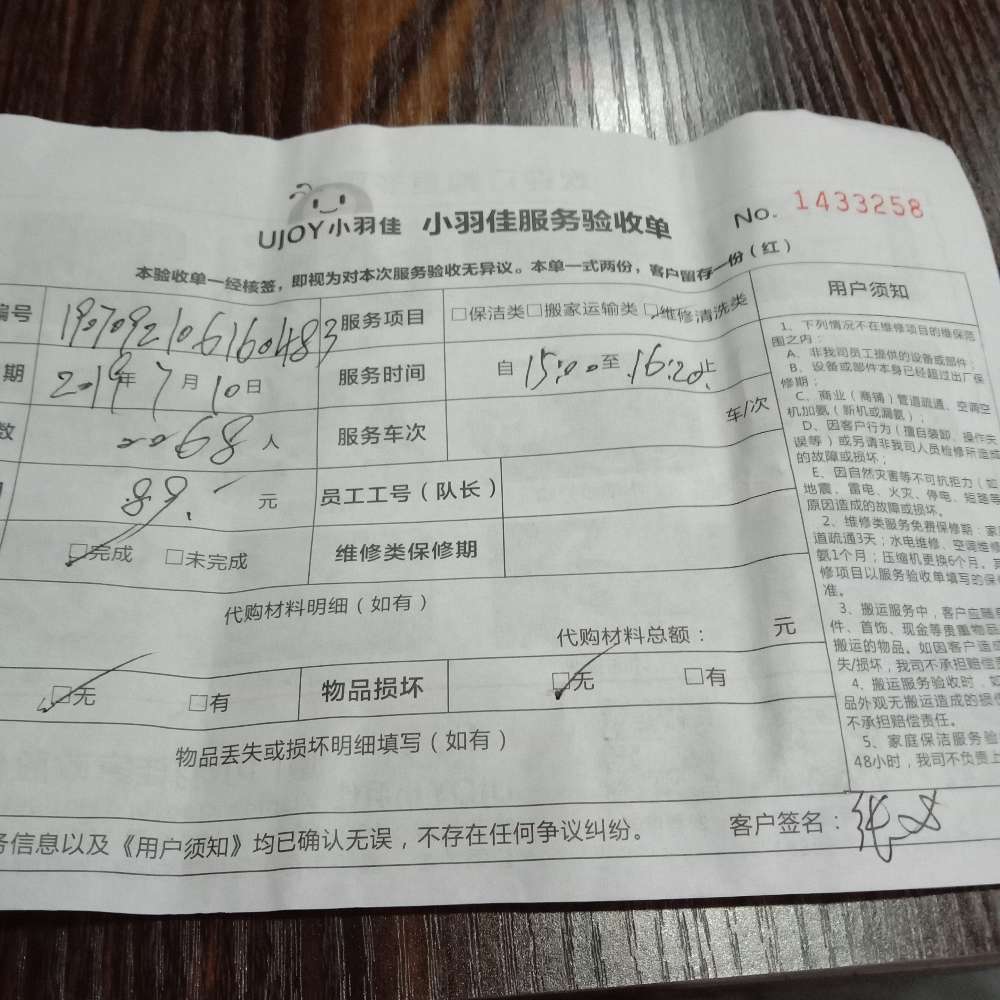 UJOY小羽佳 小羽佳服务验收单 No. 1433258
本验收单一经核签，即视为对本次服务验收无异议。本单一式两份，客户留存一份（红）
编号 19070921061 60483 服务项目 □保洁类□搬家运输类□维修清洗类
期 2019年7月10日 服务时间 自15:00至16:20止
数 人 服务车次 车/次
89.- 元 员工工号（队长）
□完成 □未完成 维修类保修期
代购材料明细（如有）
代购材料总额： 元
□无 □有 物品损坏 □无 □有
物品丢失或损坏明细填写（如有）
务信息以及《用户须知》均已确认无误，不存在任何争议纠纷。 客户签名：
用户须知
1、下列情况不在维修项目的维保范
围之内：
A、非我司员工提供的设备或部件；
B、设备或部件本身已经超过出厂保
修期；
C、商业（商铺）管道疏通、空调空
机加氨（新机或漏氨）；
D、因客户行为（擅自装卸、操作失
误等）或另请非我司人员检修所造成
的故障或损坏；
E、因自然灾害等不可抗拒力（如
地震、雷电、火灾、停电、短路等
原因造成的故障或损坏。
2、维修类服务免费保修期：家
道疏通3天；水电维修、空调维修
氨1个月；压缩机更换6个月。其
修项目以服务验收单填写的保修
准。
3、搬运服务中，客户应随身
件、首饰、现金等贵重物品
搬运的物品。如因客户造成
失/损坏，我司不承担赔偿责
4、搬运服务验收时，如
品外观无搬运造成的损伤
不承担赔偿责任。
5、家庭保洁服务验
48小时，我司不负责上